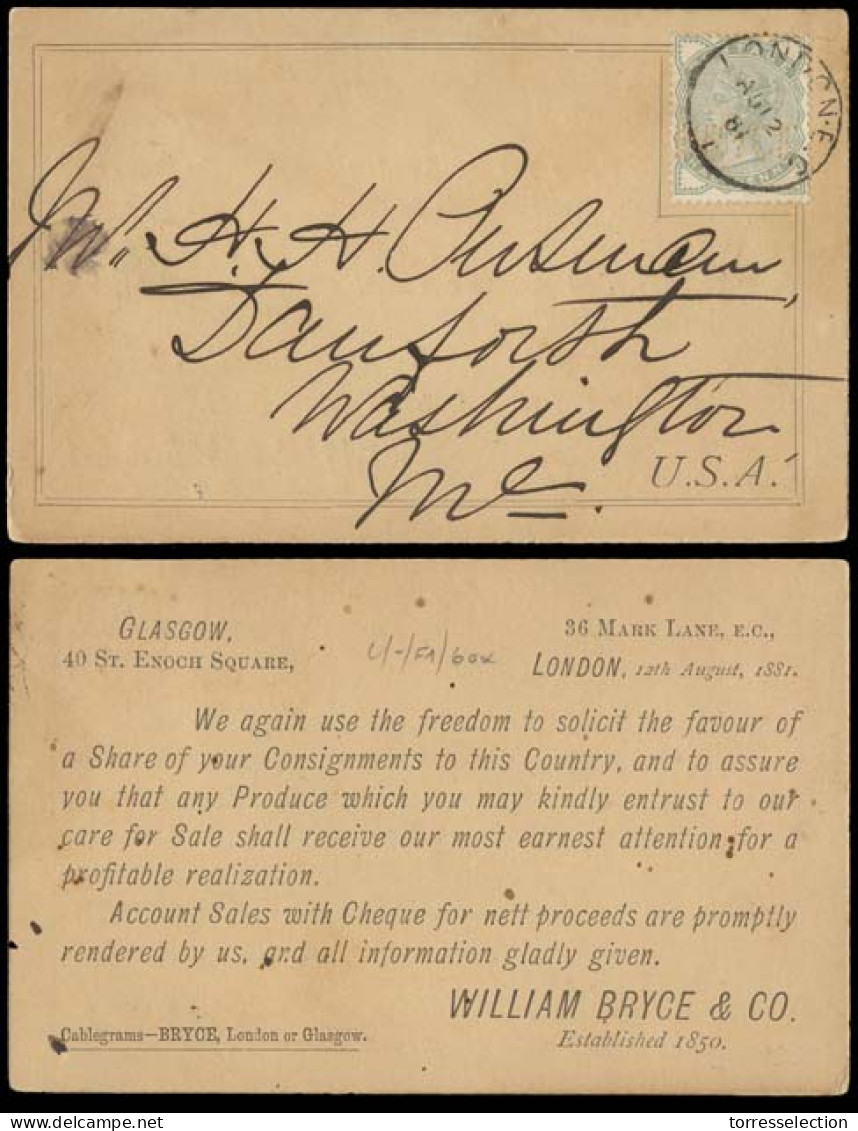 LONDON. E.C
AU 12
81
Mr. H. H. Putnam,
Danforth
Washington
Me.
U.S.A.
GLASGOW,
40 ST. ENOCH SQUARE,
36 MARK LANE, E.C.,
LONDON, 12th August, 1881.
We again use the freedom to solicit the favour of
a Share of your Consignments to this Country, and to assure
you that any Produce which you may kindly entrust to our
care for Sale shall receive our most earnest attention for a
profitable realization.
Account Sales with Cheque for nett proceeds are promptly
rendered by us, and all information gladly given.
WILLIAM BRYCE & CO.
Established 1850.
Cablegrams—BRYCE, London or Glasgow.
torresselection